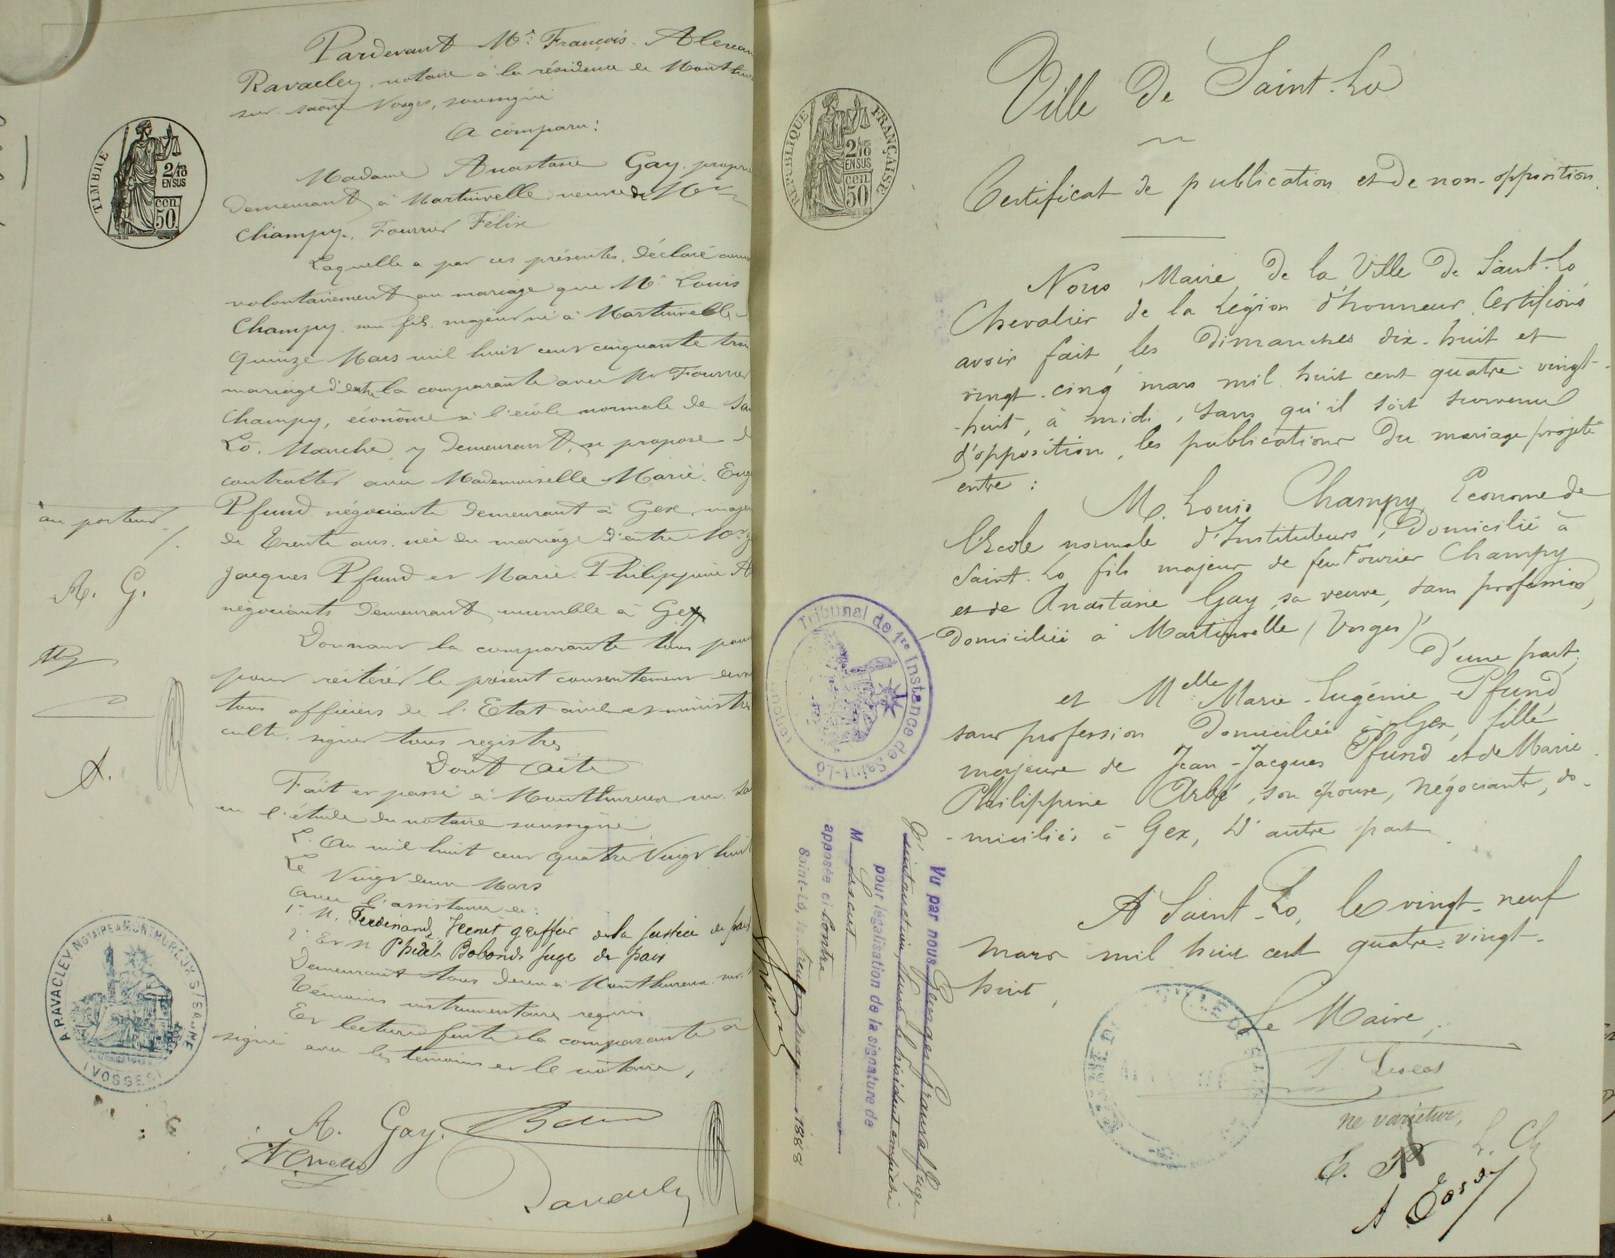 Pardevant Me François Alexan
Ravacley, notaire à la résidence de Monthur
sur Saône Vosges, soussigné
A comparu:
Madame Anastasie Gay, propr
demeurant à Martinvelle veuve de Mr
Champy, Fourrier Félix
Laquelle a par ces présentes, déclaré
volontairement au mariage que Mr Louis
Champy son fils majeur né à Martinvelle
quinze Mars mil huit cent cinquante trois
mariage d'entre la comparante avec Mr Fourrier
Champy, économe à l'école normale de Sa
Lô, Manche, y demeurant, se propose d
contracter avec Mademoiselle Marie Eug
Pfund négociante demeurant à Gex, maje
de trente ans, née du mariage d'entre Mr
Jacques Pfund et Marie Philippine A
négociants demeurant ensemble à Gex
Donnant la comparante tous pou
pour réitérer le présent consentement
tous officiers de l'Etat civil et ministre
culte, signer tous registres
Dont Acte
Fait et passé à Monthureux sur Sa
en l'étude du notaire soussigné
L'an mil huit cent quatre vingt huit
Le vingt deux Mars
avec l'assistance de:
1° M. Ferdinand greffier de la Justice de paix
2° Et M juge de paix
Demeurant tous deux à Monthureux sur
témoins instrumentaires requis
Et lecture faite la comparante a
signé avec les témoins et le notaire,
A. Gay
au porteur /.
A. G.
TIMBRE
2/10
EN SUS
50 cen
A RAVACLEY NOTAIRE A MONTHUREUX S/SAONE
(VOSGES)
Ville de Saint-Lo
Certificat de publication et de non-opposition.
Nous, Maire de la Ville de Saint-Lo,
Chevalier de la Légion d'honneur, Certifions
avoir fait, les Dimanches dix-huit et
vingt-cinq mars mil huit cent quatre-vingt-
-huit, à midi, sans qu'il soit survenu
d'opposition, les publications du mariage projeté
entre :
M. Louis Champy, Econome de
l'Ecole normale d'Instituteurs, Domicilié à
Saint-Lo fils majeur de feu Fourier Champy
et de Anastasie Gay, sa veuve, sans profession,
domiciliée à Martinvelle (Vosges)
D'une part;
et Melle Marie-Eugénie Pfund
sans profession Domiciliée à Gex, fille
majeure de Jean-Jacques Pfund et de Marie
Philippine Arbé, son épouse, négociants, do-
-miciliés à Gex, D'autre part.
A Saint-Lo, le vingt-neuf
mars mil huit cent quatre-vingt-
huit,
Le Maire,
ne varietur,
REPUBLIQUE FRANÇAISE
2/10
EN SUS
50 cen
Tribunal de 1re Instance de Saint-Lô
Vu par nous
pour légalisation de la signature de
M
apposée ci-contre
Saint-Lô, le 1888